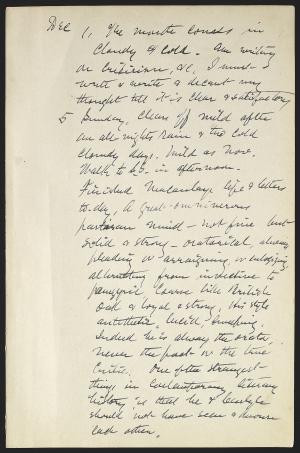 Dec 1, The month comes in
cloudy & cold. Am writing
on Criticism, &c, I must
write & write & decant my
thought till it is clear & satisfactory
5 Sunday, Clears off mild after
an all-nights rain & two cold
cloudy days, mild as Nov.
Walk to in afternoon.
Finished Macaulays life & letters
to-day, A great omniverous
partisan mind - not fine but
solid & strong - oratorical, always
pleading or arraigning or eulogizing,
alternating from invective to
panygeric. Coarse like British
Oak & loyal & strong. His style
antithetic, lucid,
Indeed he is always the orator,
never the poet or the true
Critic. One of the strangest
things in Contemporary literary
history is that he & Carlyle
should not have seen & devour
each other.